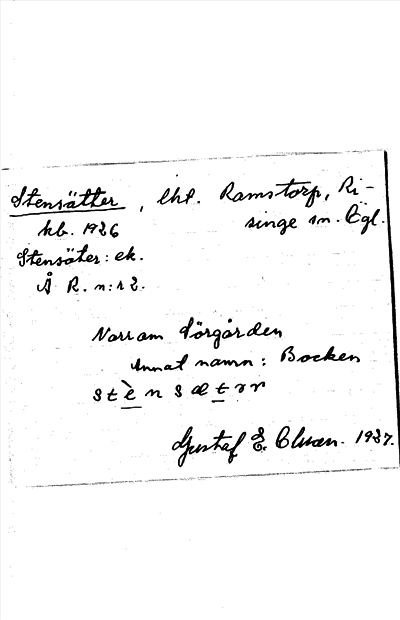 Stensätter, lht. Ramstorp, Ri-
kb. 1926 singe sn. Ögl.
Stensäter: ek.
Å R. n:r 2.
Norr om Sörgården
Annat namn: Bocken
stènsætər
Gustaf E. Clmæn. 1937.